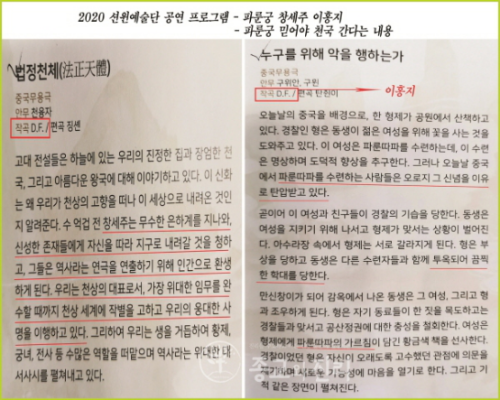 2020 션윈예술단 공연 프로그램 - 파룬궁 창세주 이홍지
- 파룬궁 믿어야 천국 간다는 내용
법정천체(法正天體)
중국무용극
안무 천융자
작곡 D.F. / 편곡 징셴
고대 전설들은 하늘에 있는 우리의 진정한 집과 장엄한 천
국, 그리고 아름다운 왕국에 대해 이야기하고 있다. 이 신화
는 왜 우리가 천상의 고향을 떠나 이 세상으로 내려온 것인
지 알려준다. 수 억겁 전 창세주는 무수한 은하계를 지나와,
신성한 존재들에게 자신을 따라 지구로 내려갈 것을 청하
고, 그들은 역사라는 연극을 연출하기 위해 인간으로 환생
하게 된다. 우리는 천상의 대표로서, 가장 위대한 임무를 완
수할 때까지 천상 세계에 작별을 고하고 우리의 웅대한 사
명을 이행하고 있다. 그리하여 우리는 생을 거듭하여 황제,
궁녀, 전사 등 수많은 역할을 떠맡으며 역사라는 위대한 대
서사시를 펼쳐내고 있다.
누구를 위해 악을 행하는가
중국무용극
안무 구위안, 구원
작곡 D.F. / 편곡 탄쥔이
이홍지
오늘날의 중국을 배경으로, 한 형제가 공원에서 산책하고
있다. 경찰인 형은 동생이 젊은 여성을 위해 꽃을 사는 것을
도와주고 있다. 이 여성은 파룬따파를 수련하는데, 이 수련
은 명상하며 도덕적 향상을 추구한다. 그러나 오늘날 중국
에서 파룬따파를 수련하는 사람들은 오로지 그 신념을 이유
로 탄압받고 있다.
곧이어 이 여성과 친구들이 경찰의 기습을 당한다. 동생은
여성을 지키기 위해 나서고 형제가 맞서는 상황이 벌어진
다. 아수라장 속에서 형제는 서로 갈라지게 된다. 형은 부
상을 당하고 동생은 다른 수련자들과 함께 투옥되어 끔찍
한 학대를 당한다.
만신창이가 되어 감옥에서 나온 동생은 그 여성, 그리고 형
과 조우하게 된다. 형은 자기 동료들이 한 짓을 목도하고는
경찰들과 맞서고 공산정권에 대한 충성을 철회한다. 여성은
형제에게 파룬따파의 가르침이 담긴 황금색 책을 선사한다.
경찰이었던 형은 자신이 오래도록 고수했던 관점에 의문을
적 같은 장면이 펼쳐진다.